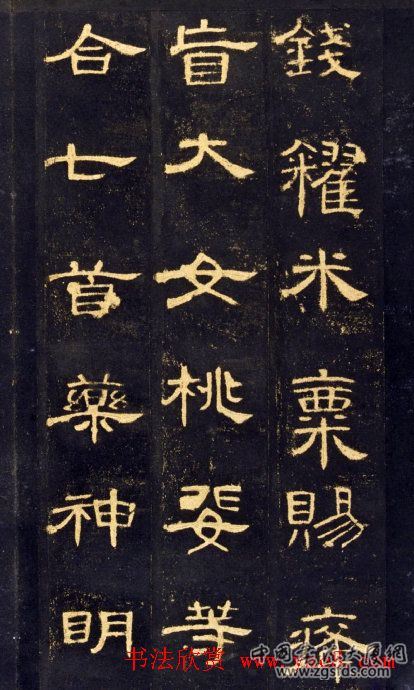 錢糴米粟賜癃
盲大女桃婓等
合七首藥神明
书法欣赏
www.zgsids.com